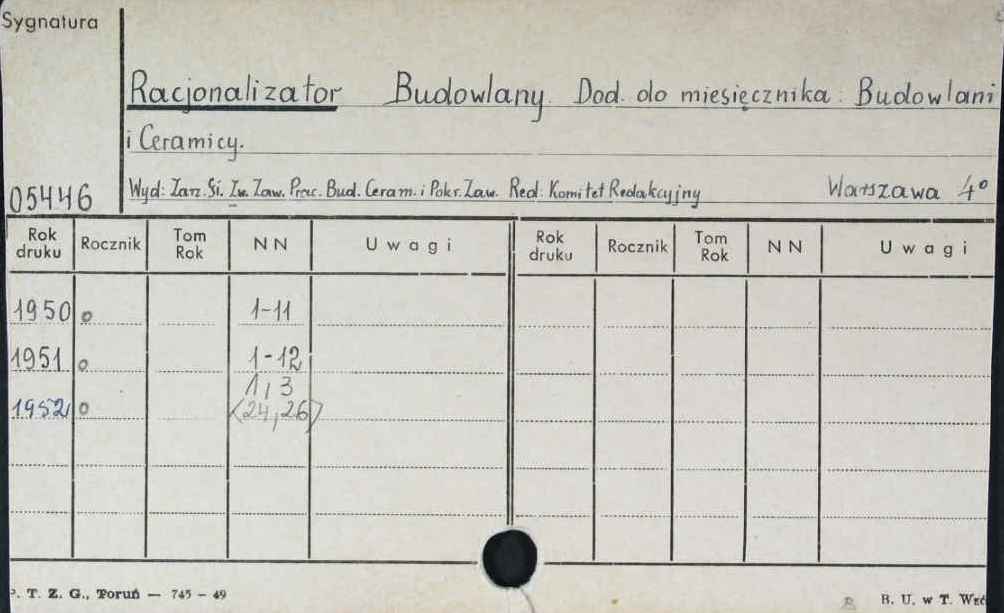 Sygnatura
Racjonalizator Budowlany. Dod. do miesięcznika: Budowlani
i Ceramicy.
05446 Wyd: Zarz. Gł. Zw. Zaw. Prac. Bud. Ceram. i Pokr. Zaw. Red: Komitet Redakcyjny Warszawa 4°
Rok druku Rocznik Tom Rok NN Uwagi Rok druku Rocznik Tom Rok NN Uwagi
1950 o 1-11
1951 o 1-12
1, 3
1952 o <24, 26>
P. T. Z. G., Toruń — 745 - 49 B. U. w T.